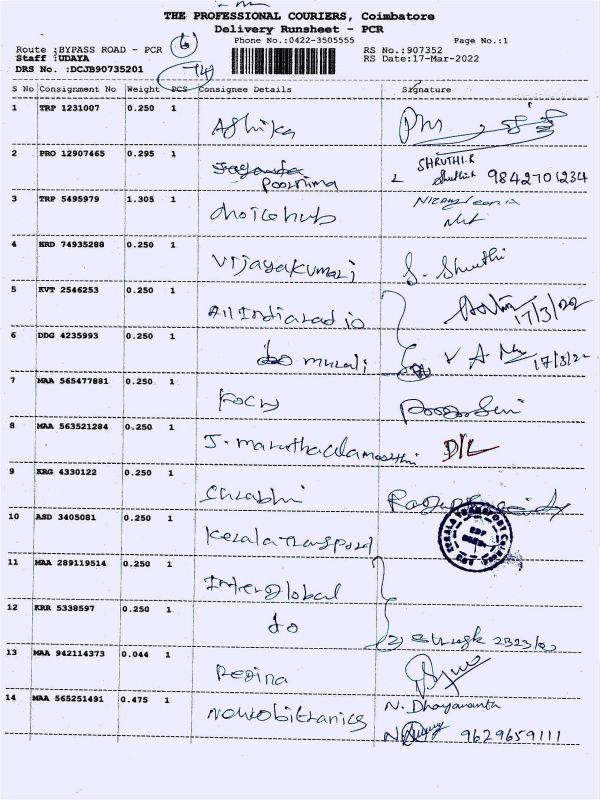 THE PROFESSIONAL COURIERS, Coimbatore
Delivery Runsheet - PCR
Phone No.:0422-3505555 Page No.:1
Route :BYPASS ROAD - PCR 6 RS No.:907352
Staff :UDAYA RS Date:17-Mar-2022
DRS No. :DCJB90735201 14
S No Consignment No Weight PCS Consignee Details Signature
1 TRP 1231007 0.250 1
Ashika
2 PRO 12907465 0.295 1 SHRUTHI.R
Poornima 9842701234
3 TRP 5495979 1.305 1
choice hub
4 HRD 74935288 0.250 1
Vijayakumari S. Shruthi
5 KVT 2546253 0.250 1
All India radio 17/3/22
6 DDG 4235993 0.250 1
murali 17/3/22
7 MAA 565477881 0.250 1
8 MAA 563521284 0.250 1
J. maruthachalamoorthi D/L
9 KRG 4330122 0.250 1
10 ASD 3405081 0.250 1
Kerala transport
11 MAA 289119514 0.250 1
Interglobal
12 KRR 5338597 0.250 1
do
13 MAA 942114373 0.044 1
Regina
14 MAA 565251491 0.475 1 N. Dhayananta
9629659111